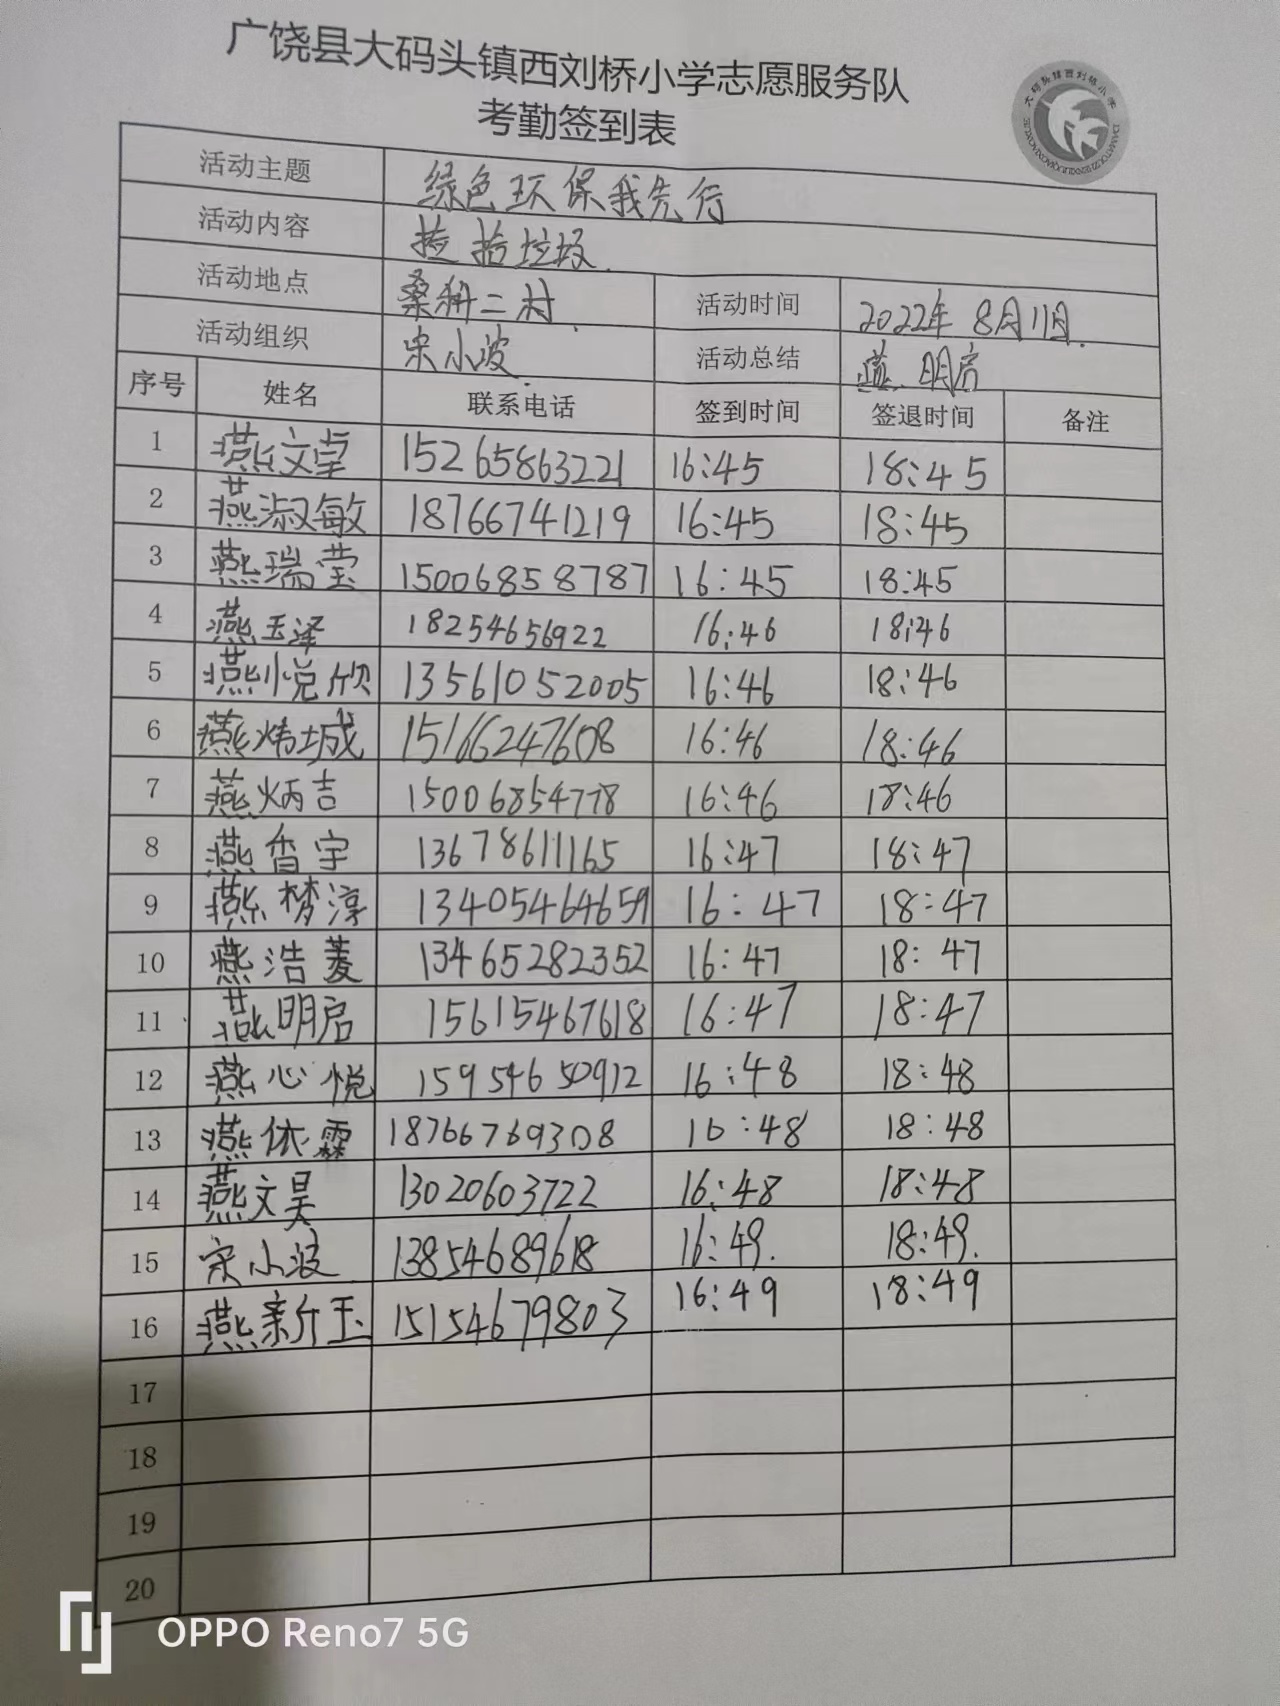 广饶县大码头镇西刘桥小学志愿服务队
考勤签到表
大码头镇西刘桥小学
活动主题 绿色环保我先行
活动内容 捡拾垃圾.
活动地点 桑科二村. 活动时间 2022年 8月11日.
活动组织 宋小波. 活动总结 燕明启
序号 姓名 联系电话 签到时间 签退时间 备注
1 燕文卓 15265863221 16:45 18:45
2 燕淑敏 18766741219 16:45 18:45
3 燕瑞莹 15006858787 16:45 18:45
4 燕玉泽 18254656922 16:46 18:46
5 燕悦欣 13561052005 16:46 18:46
6 燕炜城 15166247608 16:46 18:46
7 燕炳吉 15006854778 16:46 18:46
8 燕香宇 13678611165 16:47 18:47
9 燕梦淳 13405464659 16:47 18:47
10 燕浩菱 13465282352 16:47 18:47
11 燕明启 15615467618 16:47 18:47
12 燕心悦 15954650912 16:48 18:48
13 燕依霖 18766769308 16:48 18:48
14 燕文昊 13020603722 16:48 18:48
15 宋小波 13854689618 16:49. 18:49.
16 燕新玉 15154679803 16:49 18:49
17
18
19
20
OPPO Reno7 5G